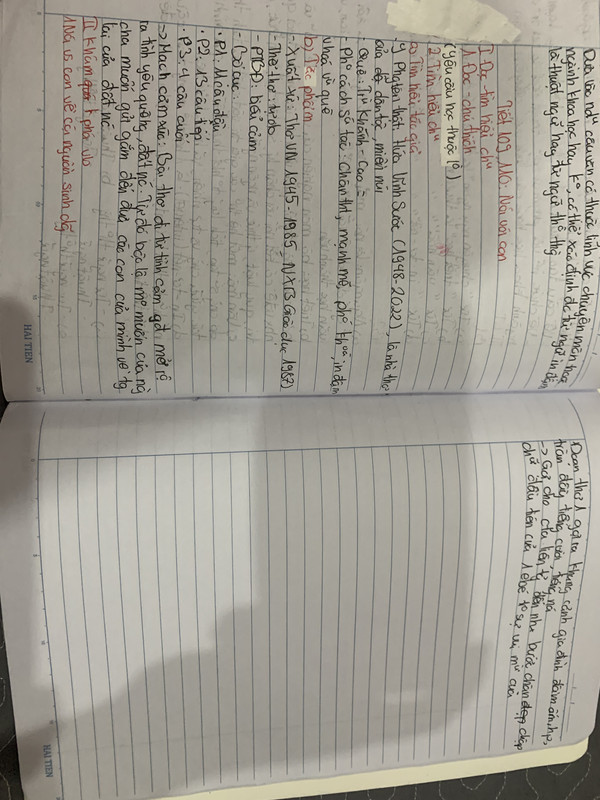 Dựa vào nd câu văn có thuộc lĩnh vực chuyên môn hoặc
ngành khoa học hay ko, có thể xác định đc từ ngữ in đậm
là thuật ngữ hay từ ngữ thô thg
Tiết 109, 110: Nói với con
I. Đọc - tìm hiểu chú
1. Đọc - chú thích
(yêu cầu học thuộc lò)
2 Tìm hiểu ch
a) Tìm hiểu tác giả
- Y Phương (Hứa Vĩnh Sước (1948-2022), là nhà thơ
của dân tộc, miền núi
- Quê: Trùng Khánh - Cao
- Pho cách sá tác: Chân tht, mạnh mẽ,
văn hoá về quê
b) Tác phẩm
- Xuất xứ: Thơ VN 1945-1985, NXB Giáo dục 1987)
- Thể thơ: tự do
- PTBĐ: biểu cảm
- Bố cục
. P1: 11 câu đầu
. P2: 13 câu tiếp
. P3: 4 câu cuối
-> Mạch cảm xúc: Bài thơ đi từ tình cảm gđ mở rộ
ra tình yêu quê hg, đất nc. Từ đó bộc lộ mo muốn của ng
cha muốn gửi gắm đến đứa các con của mình về tg
lai của đất nc
II khám phá vb
1 Nói vs con về cội nguồn sinh dưỡng
HAI TIEN
Đoạn thơ 1 gợi ra khung cảnh gia đình đầm ấm, hp,
tràn đầy tiếng cười, tiếng nói
-> Gợi cho cta liên tg đến nhx bước chân chập
chữ đầu tiên của 1 em bé
HAI TIEN